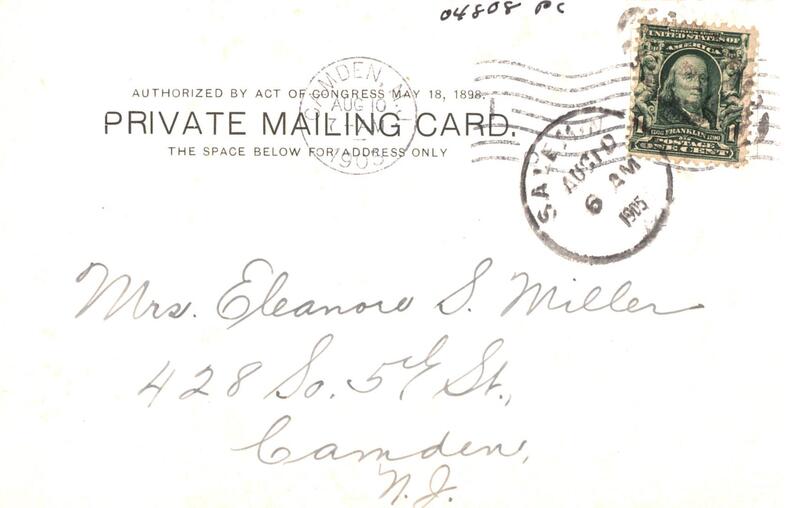 04808 PC
SERIES 1902
UNITED STATES OF
AMERICA
1790 FRANKLIN 1790
1 1
POSTAGE
ONE CENT
CAMDEN, N.J.
AUG 10
1905
SALEM
AUG 10
6 AM
1905
AUTHORIZED BY ACT OF CONGRESS MAY 18, 1898.
PRIVATE MAILING CARD.
THE SPACE BELOW FOR ADDRESS ONLY
Mrs. Eleanore S. Miller
428 So. 5th St.,
Camden,
N.J.